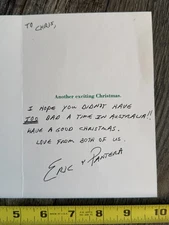 TO CHRIS,
Another exciting Christmas.
I HOPE YOU DIDN'T HAVE
TOO BAD A TIME IN AUSTRALIA!!
HAVE A GOOD CHRISTMAS.
LOVE FROM BOTH OF US
ERIC + PANTERA
5 6 7 8 9 10